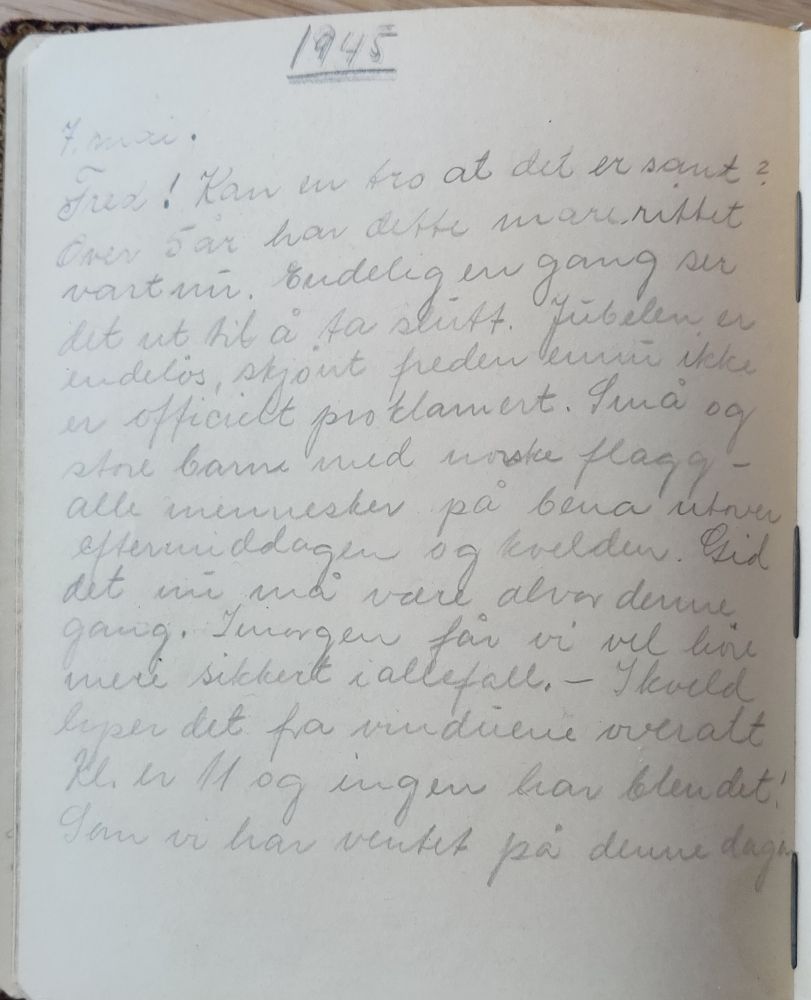 1945
7. mai.
Fred! Kan en tro at det er sant?
Over 5 år har dette marerittet
vart nu. Endelig en gang ser
det ut til å ta slutt. Jubelen er
endelös, skjönt freden ennu ikke
er officielt proklamert. Små og
store barn med norske flagg –
alle mennesker på bena utover
eftermiddagen og kvelden. Gid
det nu må være alvor denne
gang. Imorgen får vi vel höre
mere sikkert iallefall. – Ikveld
lyser det fra vinduene overalt
Kl. er 11 og ingen har blendet!
Som vi har ventet på denne dagen